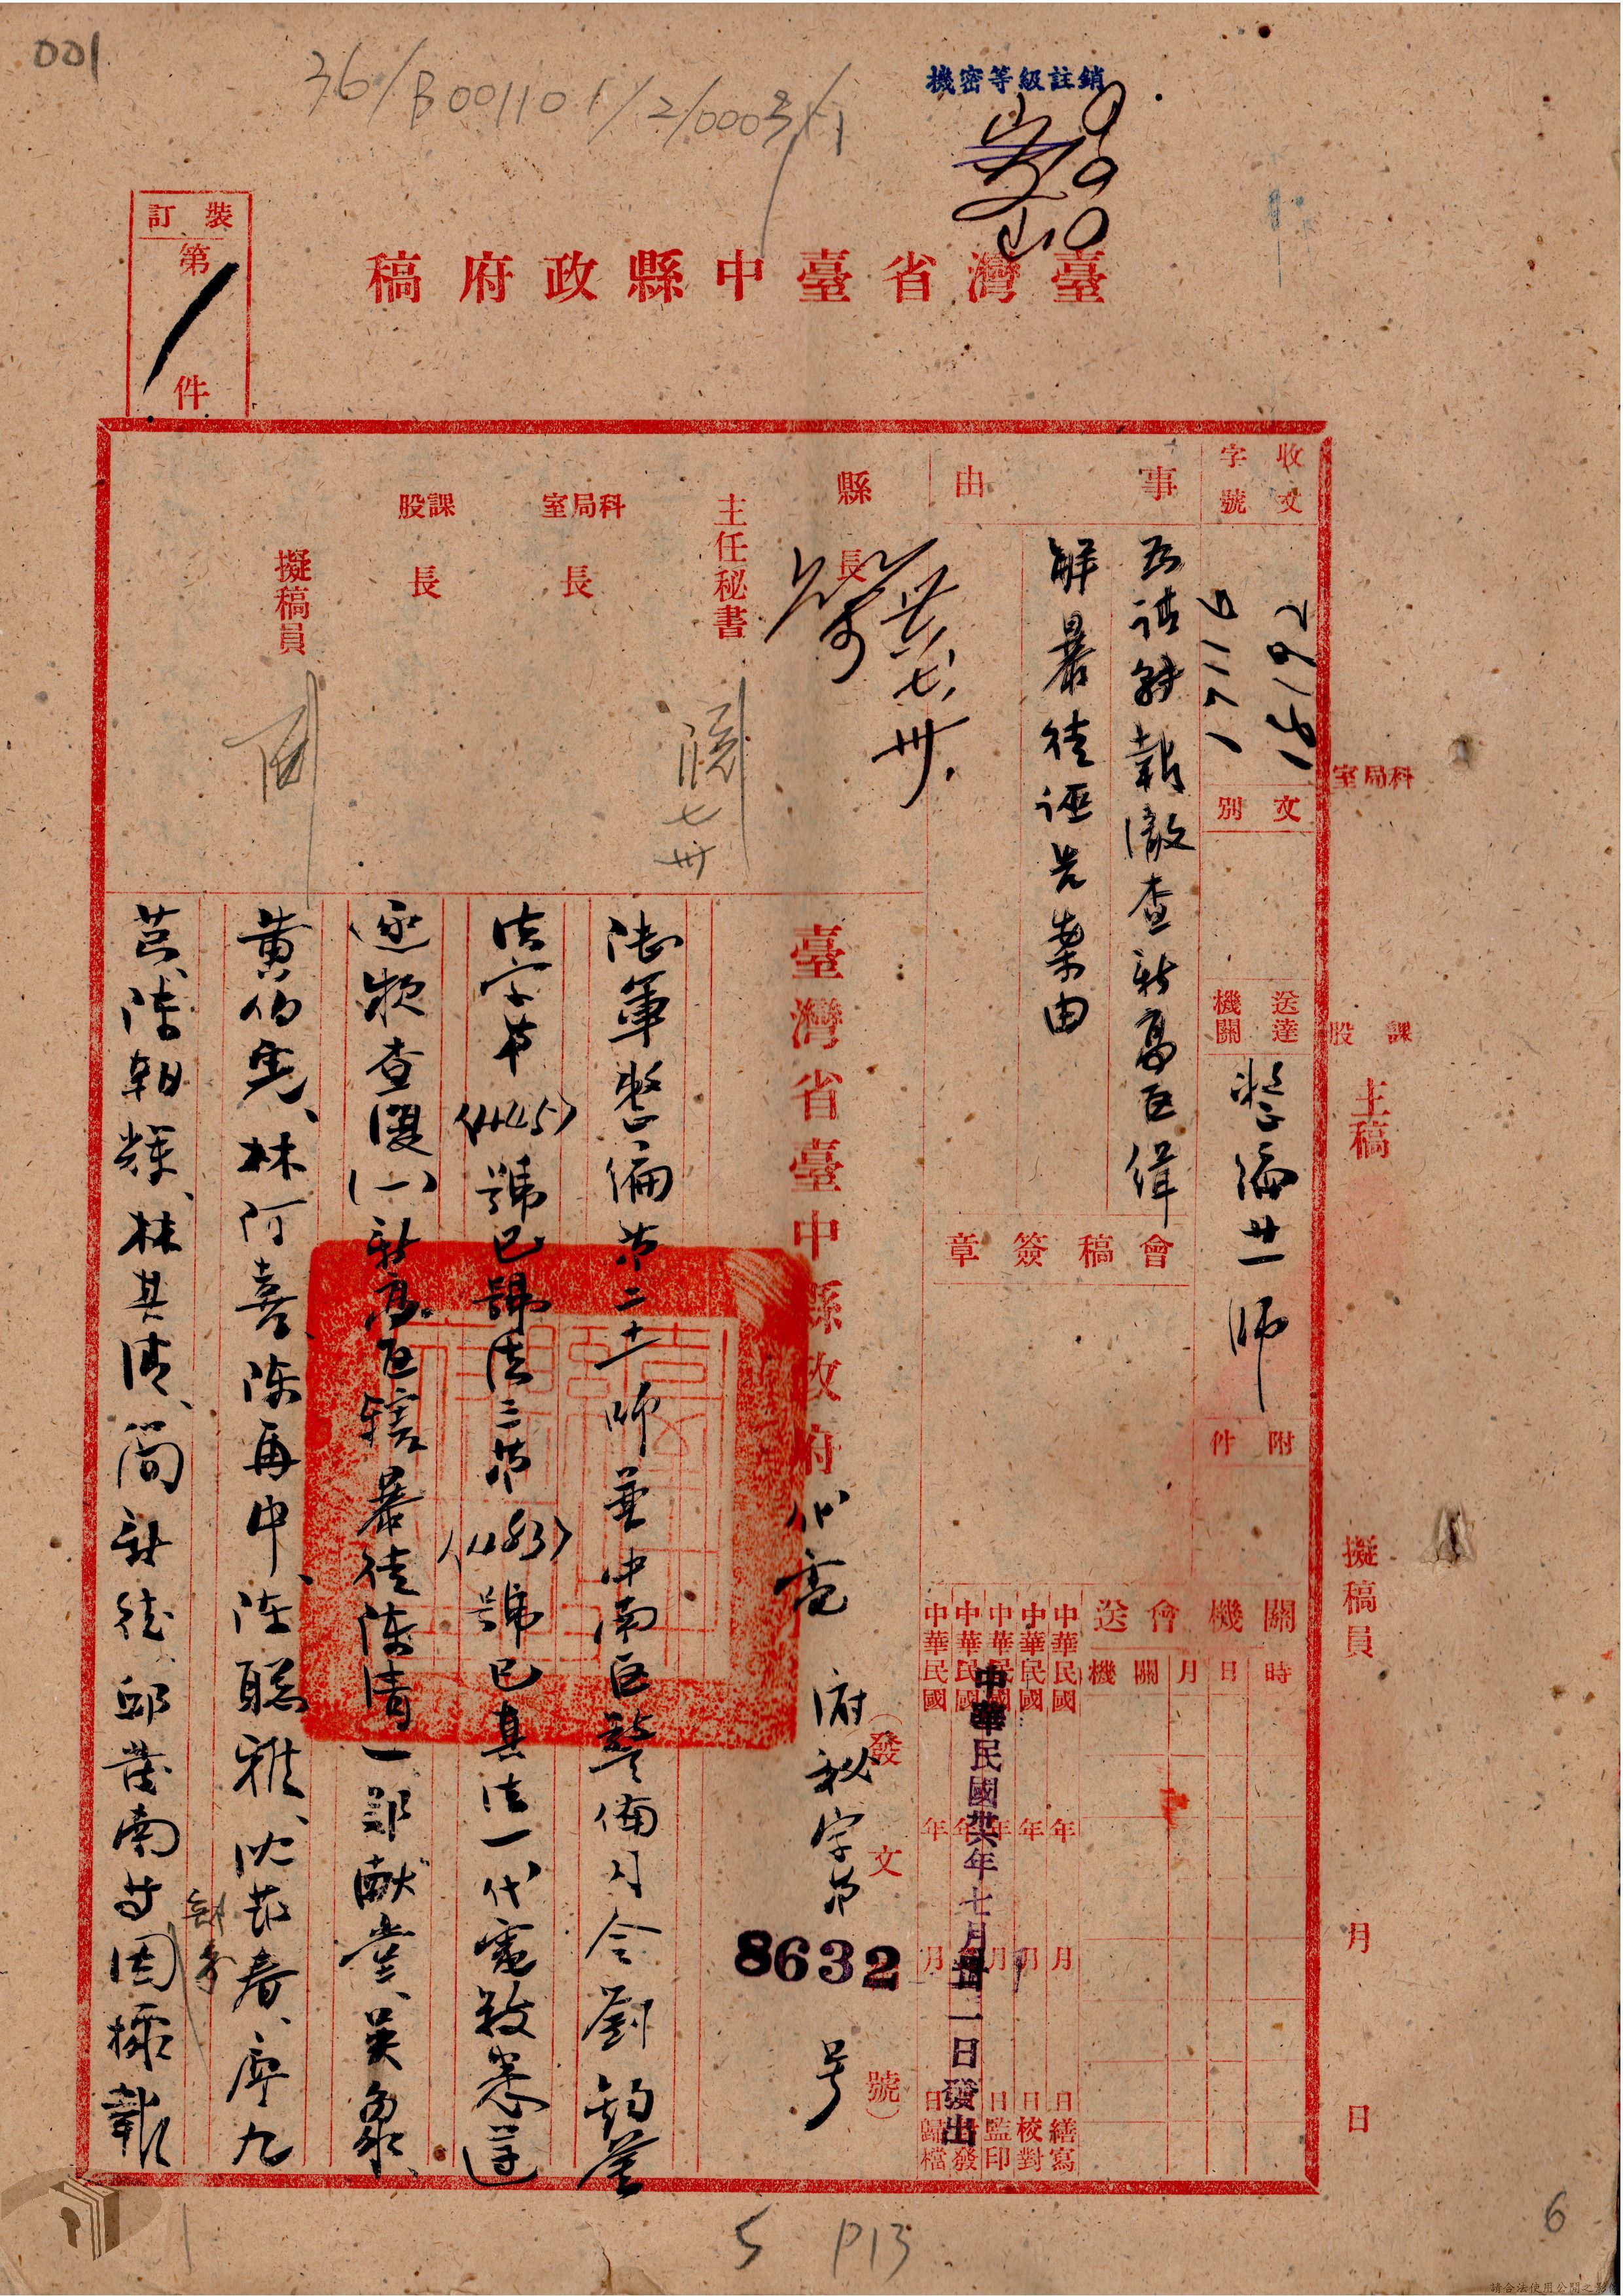 001
36/B001101/2/0003/1
機密等級註銷
密
裝訂
第
1
件
臺灣省臺中縣政府稿
收文
字號
16192
17116
文別
送達機關
整編廿一師
附件
事由
為請轉報澈查新高區緝
解暴徒逕先案由
會稿簽章
關機會送
時
日
月
關
機
中華民國 年 月 日繕寫
中華民國 年 月 日校對
中華民國 年 月 日監印
中華民國 年 月 日封發
中華民國 年 月 日歸檔
中華民國卅六年七月卅一日發出
縣長
卅六、七、卅、
主任秘書
七 卅
科局室長
課股長
擬稿員
臺灣省臺中縣政府代電
(發文號)
府秘字第8632号
陸軍整編第二十一師兼中南區警備司令劉鈞鑒
法字第(1425)號巳號法三第(1483)號巳真法一代電敬悉謹
逐款查復(一)新高區轄暴徒陳清一郎獻堂、吳象、
黃伯先、林阿喜、陈再中、陈聰雅、沈茂春、廖九
芎、陳朝輝、林其清、簡新徒、邱黃南等因據報
科局室
課股
主稿
擬稿員
月
日
5
P13
6
請合法使用公開之影